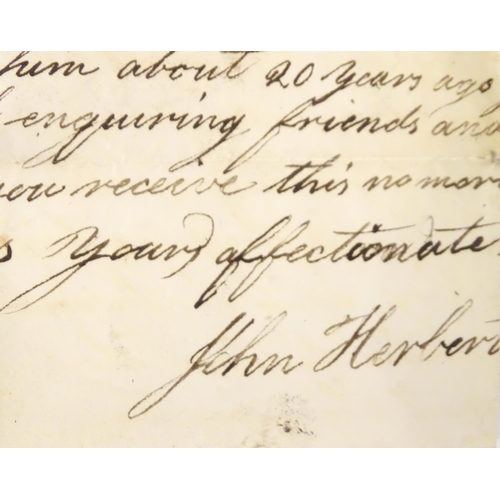 him about 20 years ago
enquiring friends and
you receive this no mor
s yours affectionate
John Herbert